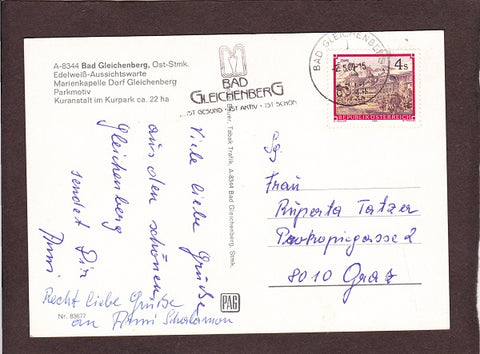 A-8344 Bad Gleichenberg, Ost-Stmk.
Edelweiß-Aussichtswarte
Marienkapelle Dorf Gleichenberg
Parkmotiv
Kuranstalt im Kurpark ca. 22 ha
BAD
GLEICHENBERG
...IST GESUND · IST AKTIV · IST SCHÖN
BAD GLEICHENBERG
4 S
REPUBLIK ÖSTERREICH
Viele liebe Grüße
aus dem schönen
Gleichenberg
sendet Dir
Anni
Recht liebe Grüße
an Anni
Tabak Trafik, A-8344 Bad Gleichenberg, Stmk.
Sg.
Frau
Ruperta Tatzer
Prokopigasse 2
8010 Graz
PAG
Nr. 83677